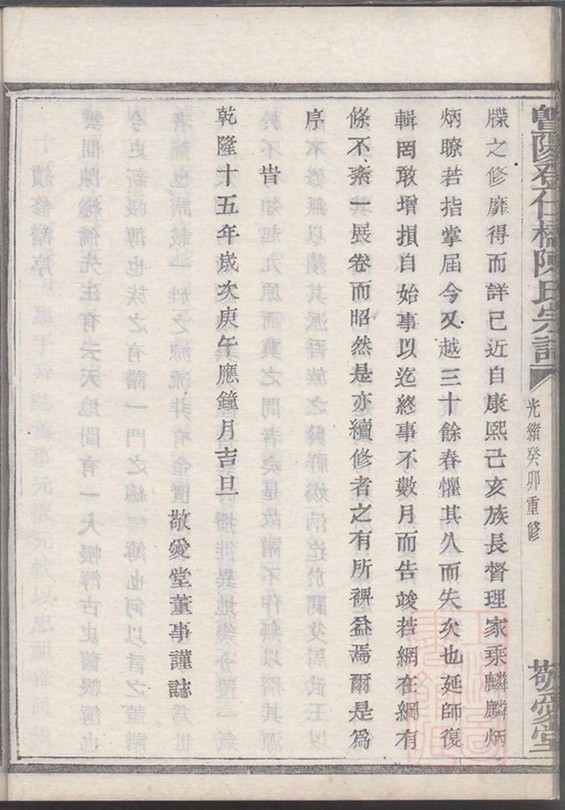 暨陽登仕橋陳氏宗譜
光緒癸卯重修
敬愛堂
牒之修靡得而詳已近自康熙己亥族長督理家乘麟麟炳
炳瞭若指掌屆今又越三十餘春懼其久而失次也延師復
輯罔敢增損自始事以迄終事不數月而告竣若網在綱有
條不紊一展卷而昭然是亦續修者之有所裨益焉爾是為
序
旹
乾隆十五年歲次庚午應鐘月吉旦
敬愛堂董事謹誌